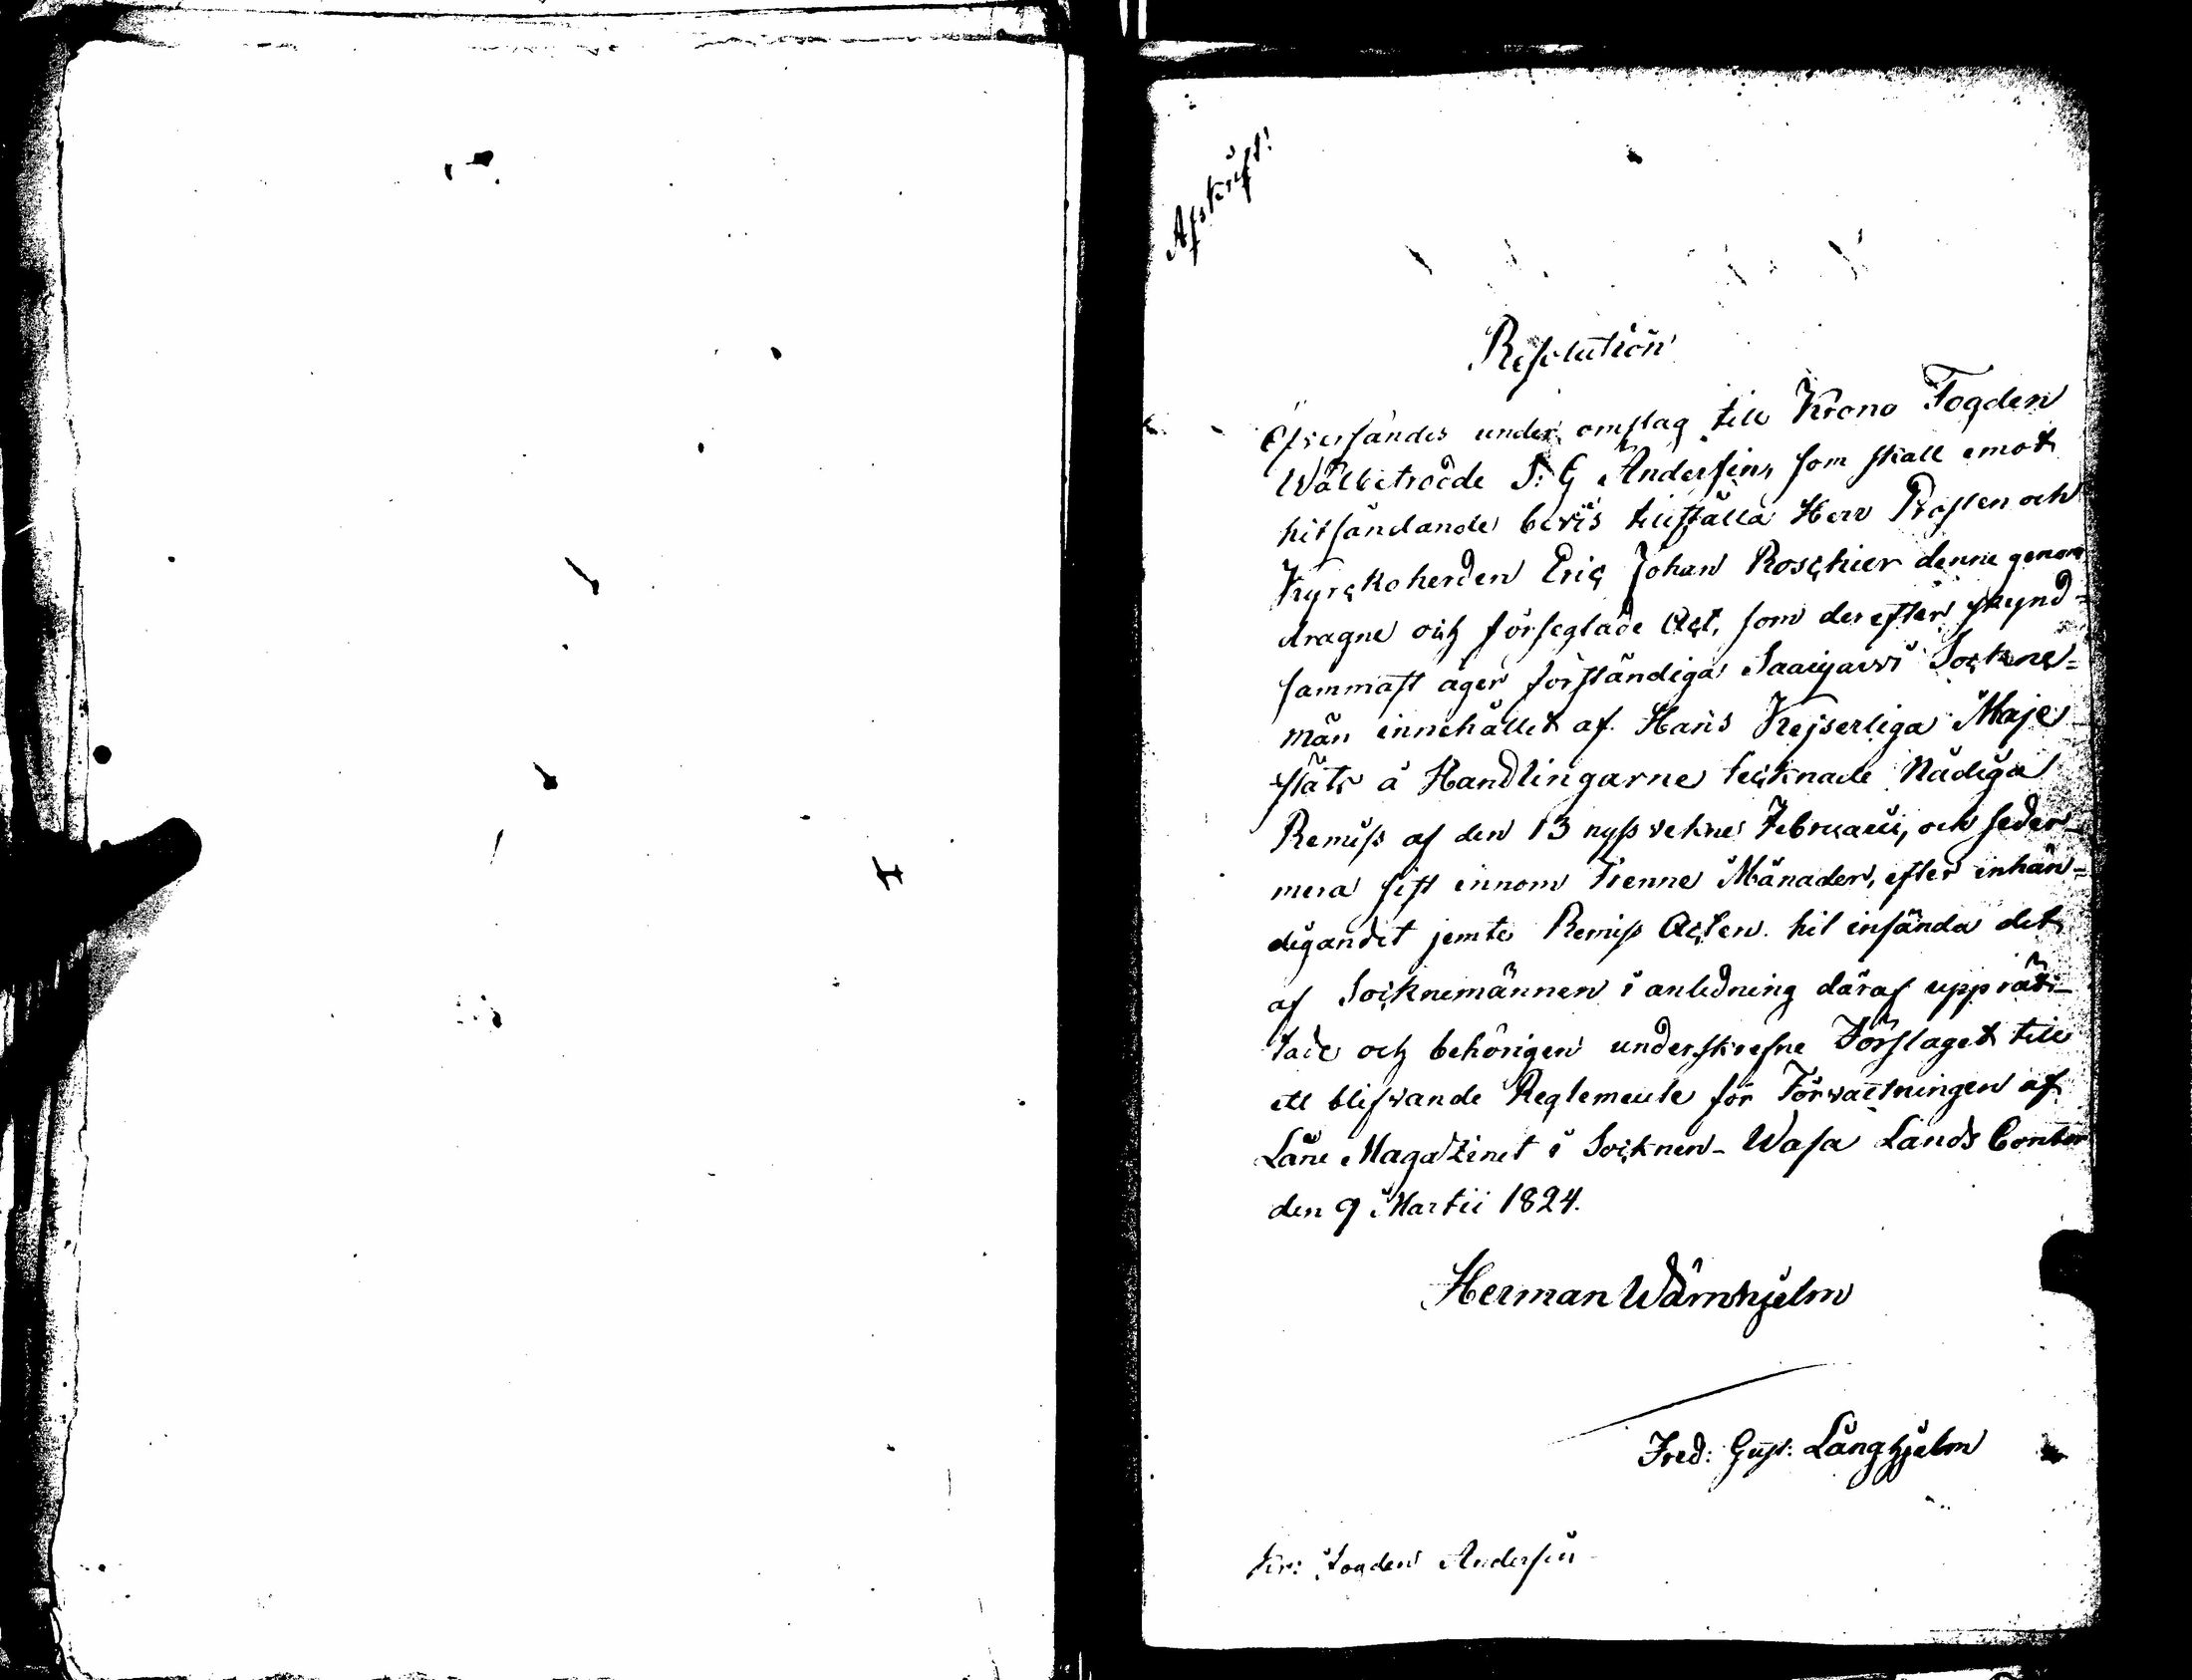 Afskrift!
Resolution
Öfversändes under omslag till Krono Fogden
Wälbetrodde J: G Andersin, som skall emot
hitsändande bevis tillställa Herr Prosten och
Kyrckoherden Eric Johan Roschier denne genom
dragne och förseglade Act, som derefter skynd=
sammast äger förständiga Saarijarvi Sockne=
män innehållet af Hans Kejserliga Maje
-stäts å Handlingarne tecknade Nådiga
Remiss af den 13 nyss vekne Februarii, och seder-
mera sist innom Trenne Månader, efter inhän=
digandet jemte Remiss Acten hit insända det
af Socknemännen i anledning däraf upprät-
tade och behörigen underskrefne Förslaget till
ett blifvande Reglemente för Förvaltningen af
Låne Magazinet i Socknen- Wasa Lands Contor
den 9 Martii 1824.
Herman Wärnhjelm
Fred: Gust: Långhjelm
Kr: Fogden Andersin